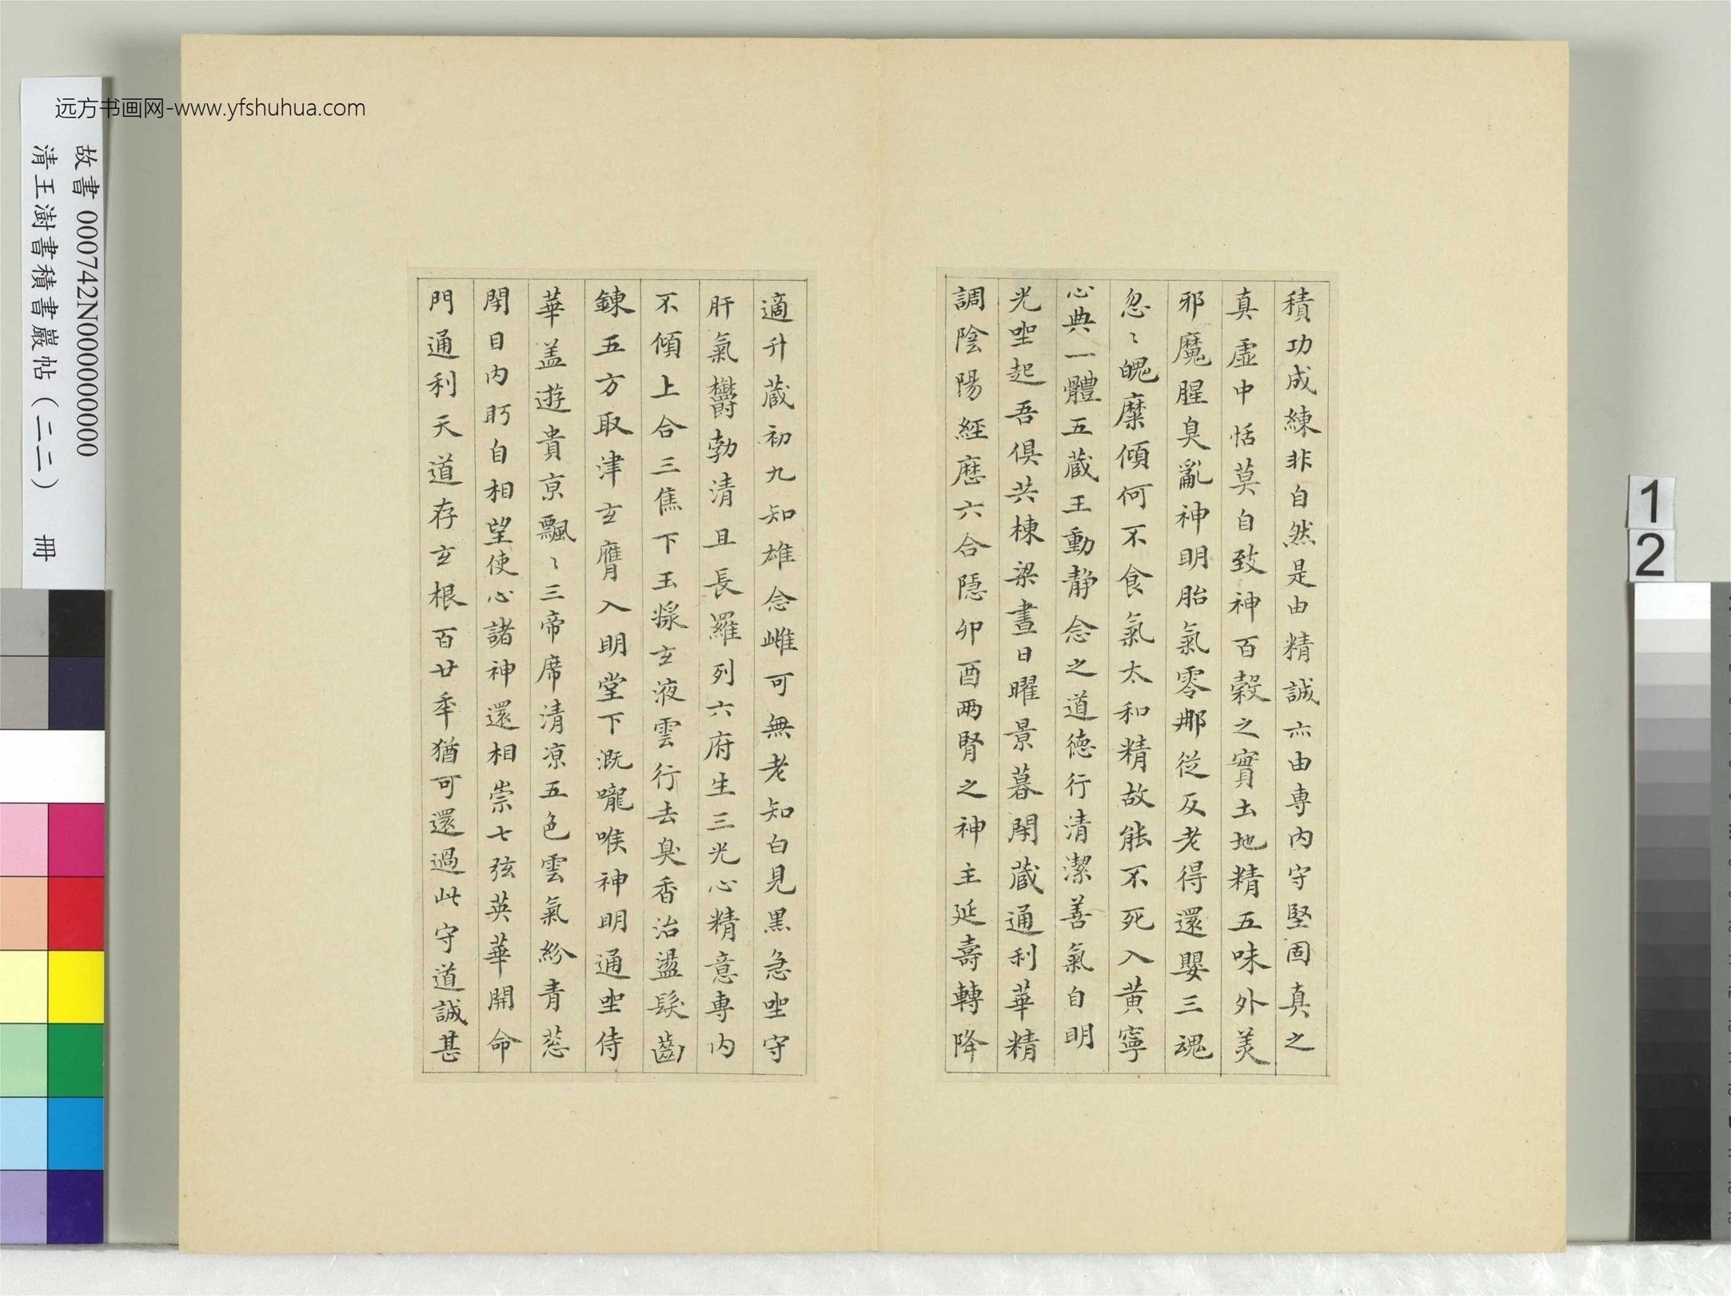 远方书画网-www.yfshuhua.com
故書 000742N000000000
清王澍書積書巖帖（二二） 冊
1
2
積功成練非自然是由精誠亦由專內守堅固真之
真虛中恬莫自致神百穀之實土地精五味外美
邪魔腥臭亂神明胎氣零那從反老得還嬰三魂
忽〻魄糜傾何不食氣太和精故能不死入黄寧
心典一體五藏王動静念之道德行清潔善氣自明
光坐起吾俱共棟梁晝日曜景暮閉藏通利華精
調陰陽經歷六合隱卯酉兩腎之神主延壽轉降
適升藏初九知雄念雌可無老知白見黑急坐守
肝氣欝勃清且長羅列六府生三光心精意專內
不傾上合三焦下玉漿玄液雲行去臭香治盪髮齒
鍊五方取津玄膺入明堂下溉嚨喉神明通坐侍
華盖遊貴京飄〻三帝席清凉五色雲氣紛青葱
閉目内眄自相望使心諸神還相崇七弦英華開命
門通利天道存玄根百廿年猶可還過此守道誠甚